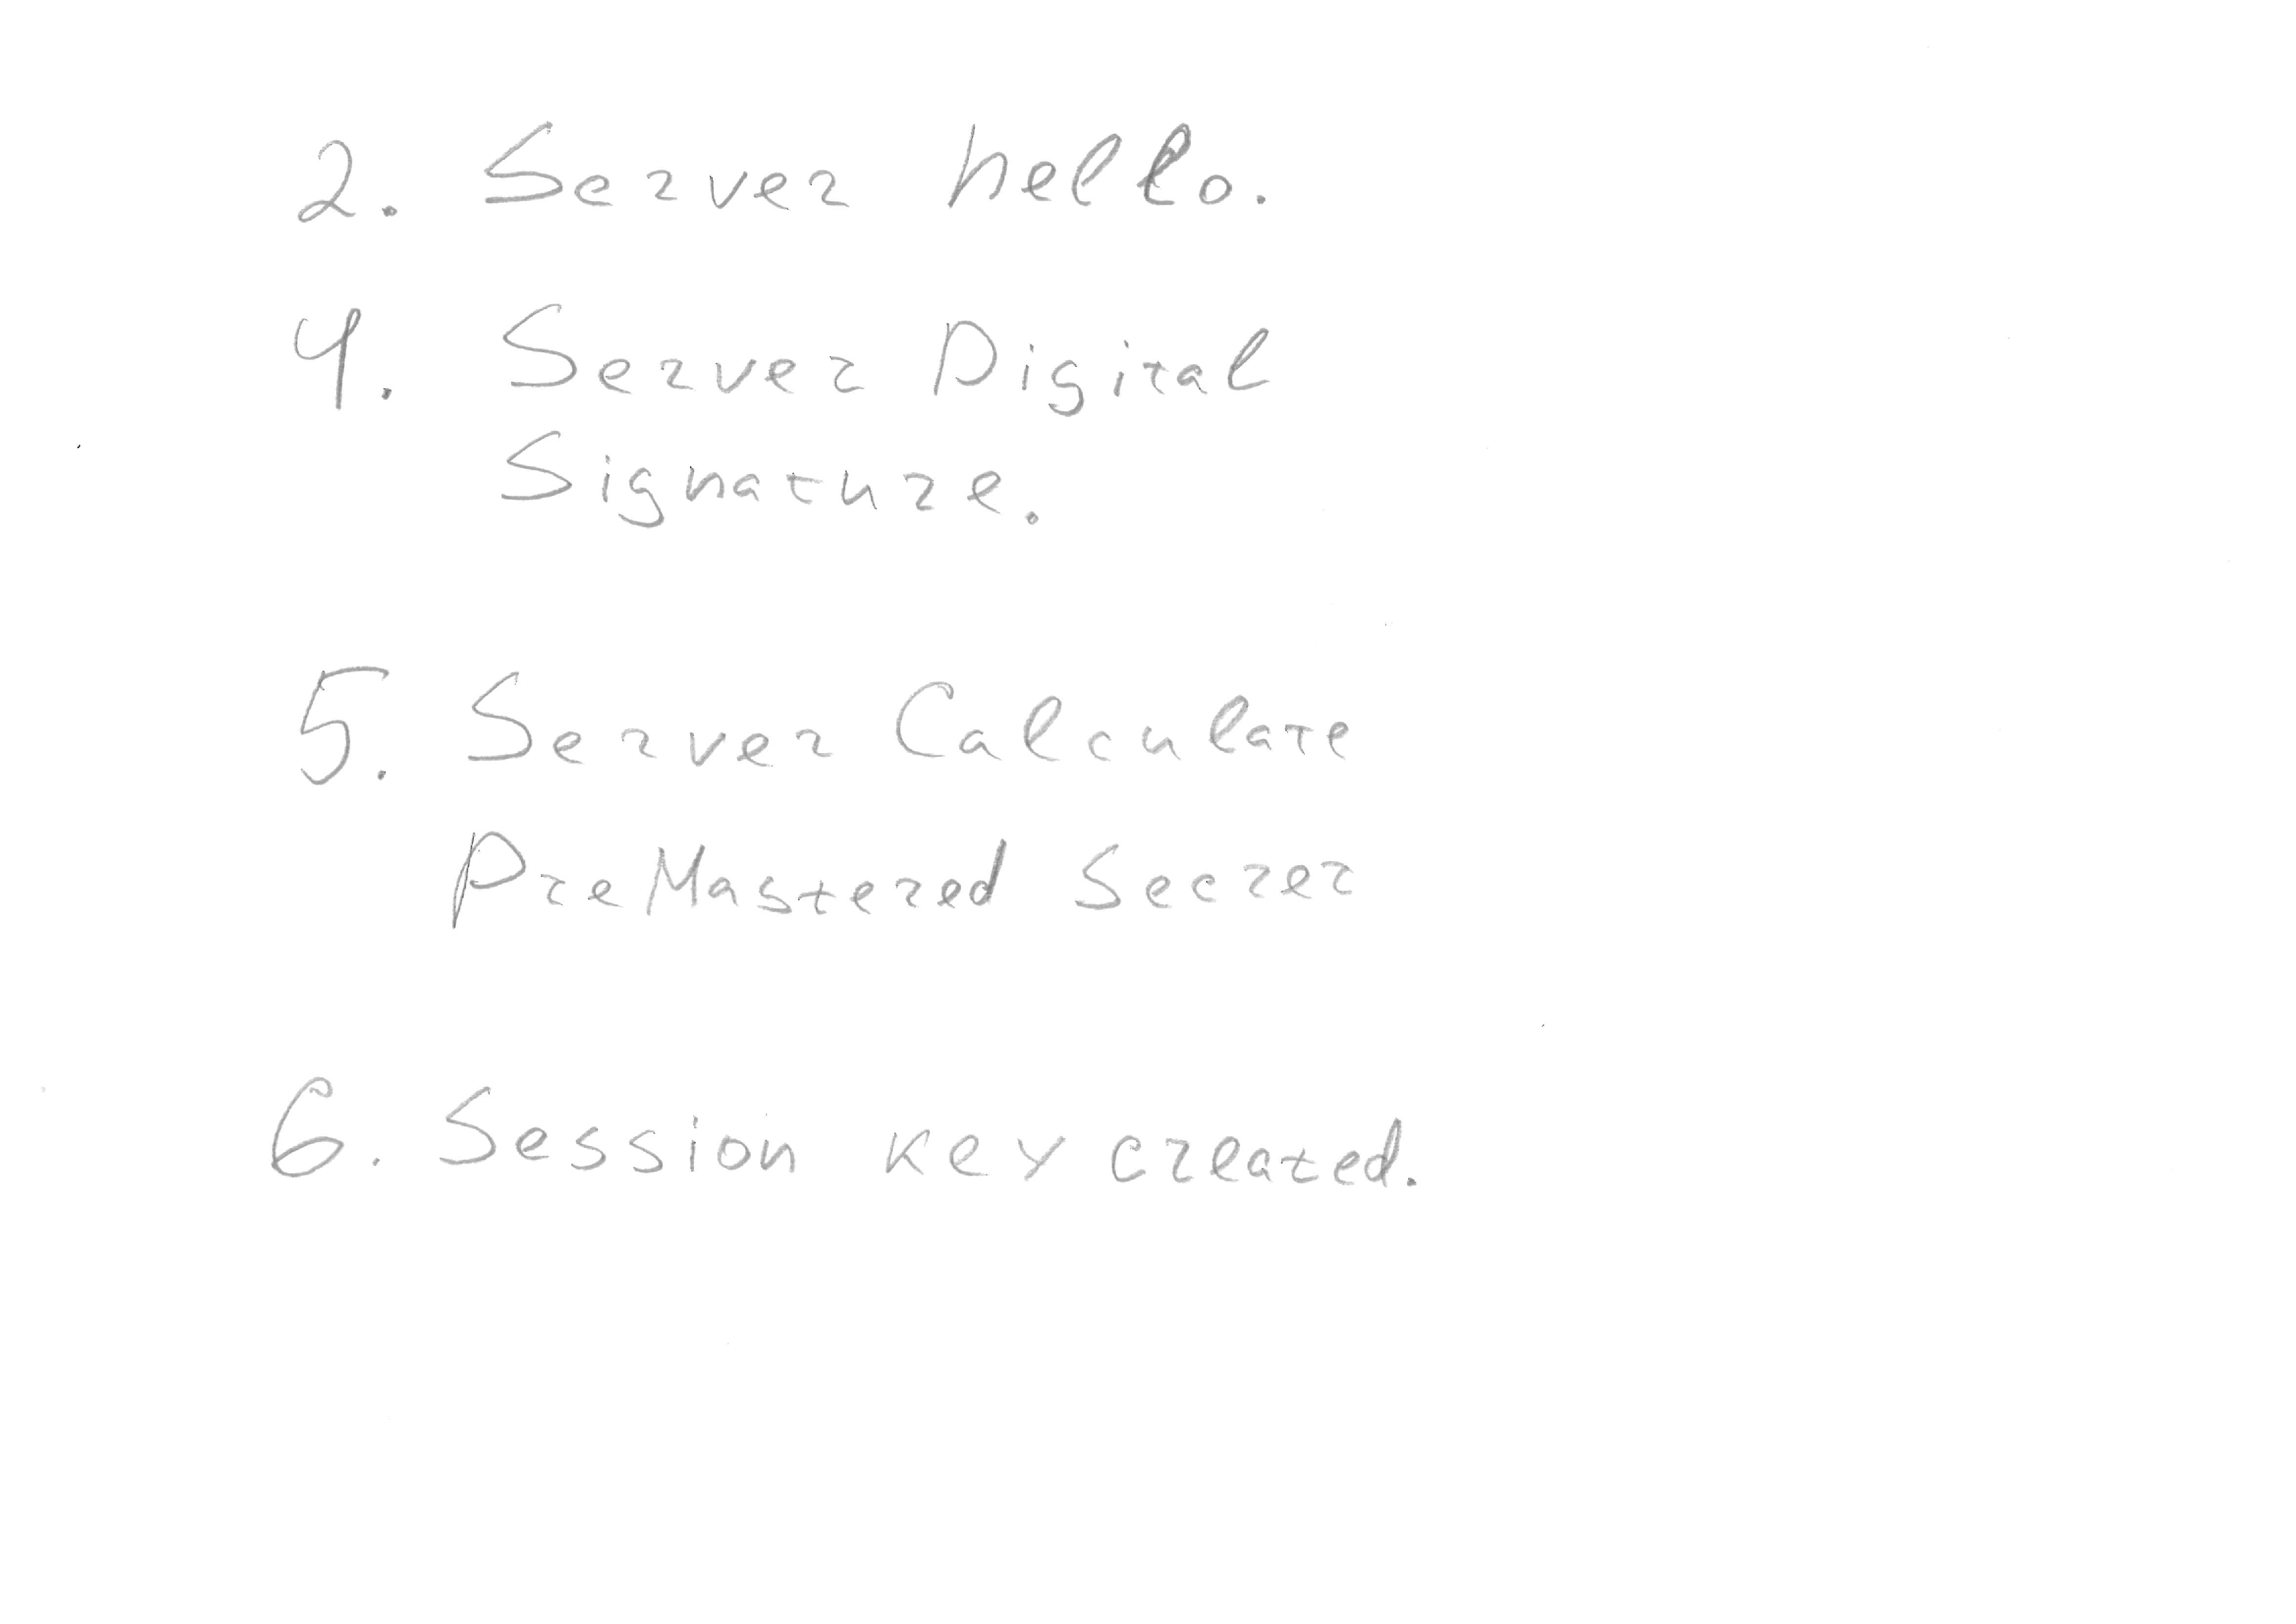 2. Server hello.
4. Server Digital
Signature.
5. Server Calculate
PreMastered Secret
6. Session key created.